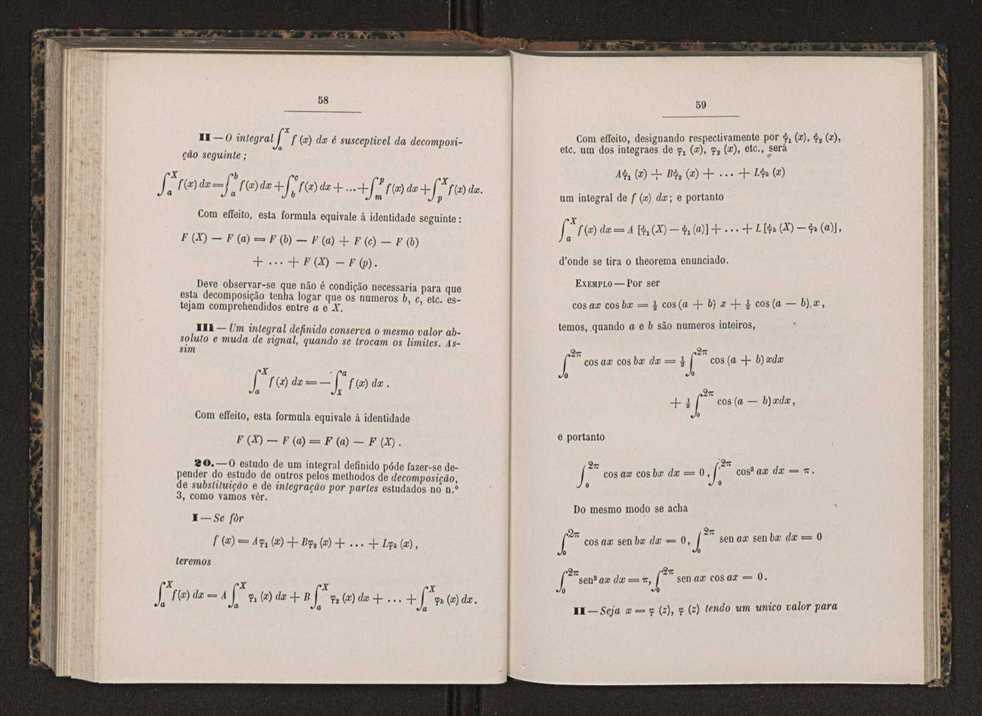 58
II — O integral ∫ₐˣ f (x) dx é susceptivel da decomposi-
ção seguinte ;
∫ₐ^X f(x) dx = ∫ₐ^b f(x) dx + ∫_b^c f(x) dx + ... + ∫_m^p f(x) dx + ∫_p^X f(x) dx.
Com effeito, esta formula equivale á identidade seguinte :
F (X) — F (a) = F (b) — F (a) + F (c) — F (b)
+ ... + F (X) — F (p).
Deve observar-se que não é condição necessaria para que
esta decomposição tenha logar que os numeros b, c, etc. es-
tejam comprehendidos entre a e X.
III — Um integral definido conserva o mesmo valor ab-
soluto e muda de signal, quando se trocam os limites. As-
sim
∫ₐ^X f (x) dx = — ∫_X^a f (x) dx .
Com effeito, esta formula equivale á identidade
F (X) — F (a) = F (a) — F (X) .
20. — O estudo de um integral definido póde fazer-se de-
pender do estudo de outros pelos methodos de decomposição,
de substituição e de integração por partes estudados no n.º
3, como vamos vêr.
I — Se fôr
f (x) = Aφ₁ (x) + Bφ₂ (x) + ... + Lφₖ (x) ,
teremos
∫ₐ^X f(x) dx = A ∫ₐ^X φ₁ (x) dx + B ∫ₐ^X φ₂ (x) dx + ... + ∫ₐ^X φₖ (x) dx.
59
Com effeito, designando respectivamente por ψ₁ (x), ψ₂ (x),
etc. um dos integraes de φ₁ (x), φ₂ (x), etc., será
Aψ₁ (x) + Bψ₂ (x) + ... + Lψₖ (x)
um integral de f (x) dx ; e portanto
∫ₐ^X f(x) dx = A [ψ₁(X) — ψ₁(a)] + ... + L [ψₖ (X) — ψₖ (a)],
d'onde se tira o theorema enunciado.
EXEMPLO — Por ser
cos ax cos bx = ½ cos (a + b) x + ½ cos (a — b) x ,
temos, quando a e b são numeros inteiros,
∫₀^2π cos ax cos bx dx = ½ ∫₀^2π cos (a + b) xdx
+ ½ ∫₀^2π cos (a — b) xdx ,
e portanto
∫₀^2π cos ax cos bx dx = 0 , ∫₀^2π cos² ax dx = π .
Do mesmo modo se acha
∫₀^2π cos ax sen bx dx = 0 , ∫₀^2π sen ax sen bx dx = 0
∫₀^2π sen² ax dx = π, ∫₀^2π sen ax cos ax = 0 .
II — Seja x = φ (z), φ (z) tendo um unico valor para